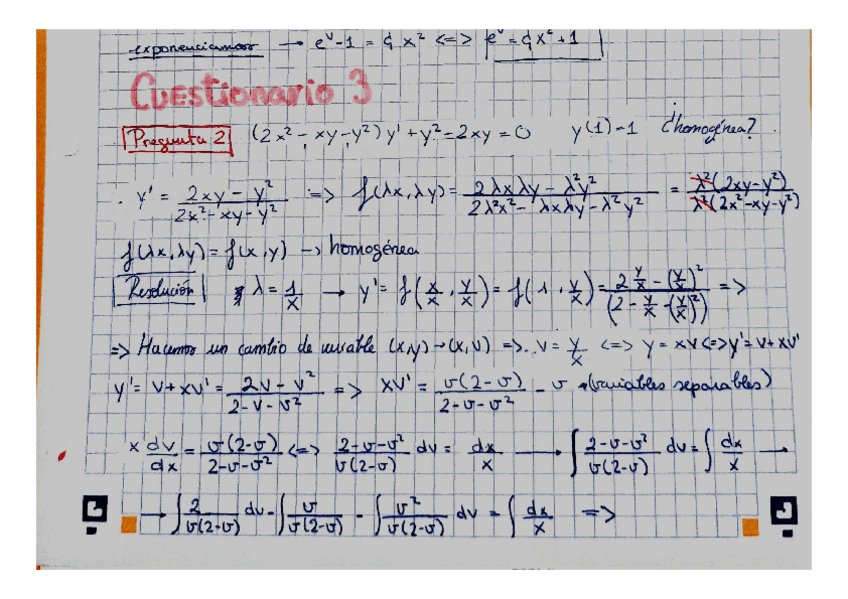 exponenciamos → e^v-1 = C₁x² <=> e^v = C₁x²+1
Cuestionario 3
Pregunta 2 (2x²-xy-y²)y'+y²-2xy=0 y(1)=1 ¿homogénea?
y' = (2xy-y²)/(2x²-xy-y²) => f(λx,λy) = (2λxλy-λ²y²)/(2λ²x²-λxλy-λ²y²) = λ²(2xy-y²)/λ²(2x²-xy-y²)
f(λx,λy) = f(x,y) → homogénea
Resolución λ = 1/x → y' = f(x/x, y/x) = f(1, y/x) = (2 y/x - (y/x)²)/(2 - y/x - (y/x)²) =>
=> Hacemos un cambio de variable (x,y)→(x,v) => v = y/x <=> y = xv <=> y' = v+xv'
y' = v+xv' = (2v-v²)/(2-v-v²) => xv' = v(2-v)/(2-v-v²) - v → (variables separables)
x dv/dx = v(2-v)/(2-v-v²) <=> (2-v-v²)/(v(2-v)) dv = dx/x → ∫ (2-v-v²)/(v(2-v)) dv = ∫ dx/x →
→ ∫ 2/(v(2-v)) dv - ∫ v/(v(2-v)) - ∫ v²/(v(2-v)) dv = ∫ dx/x =>